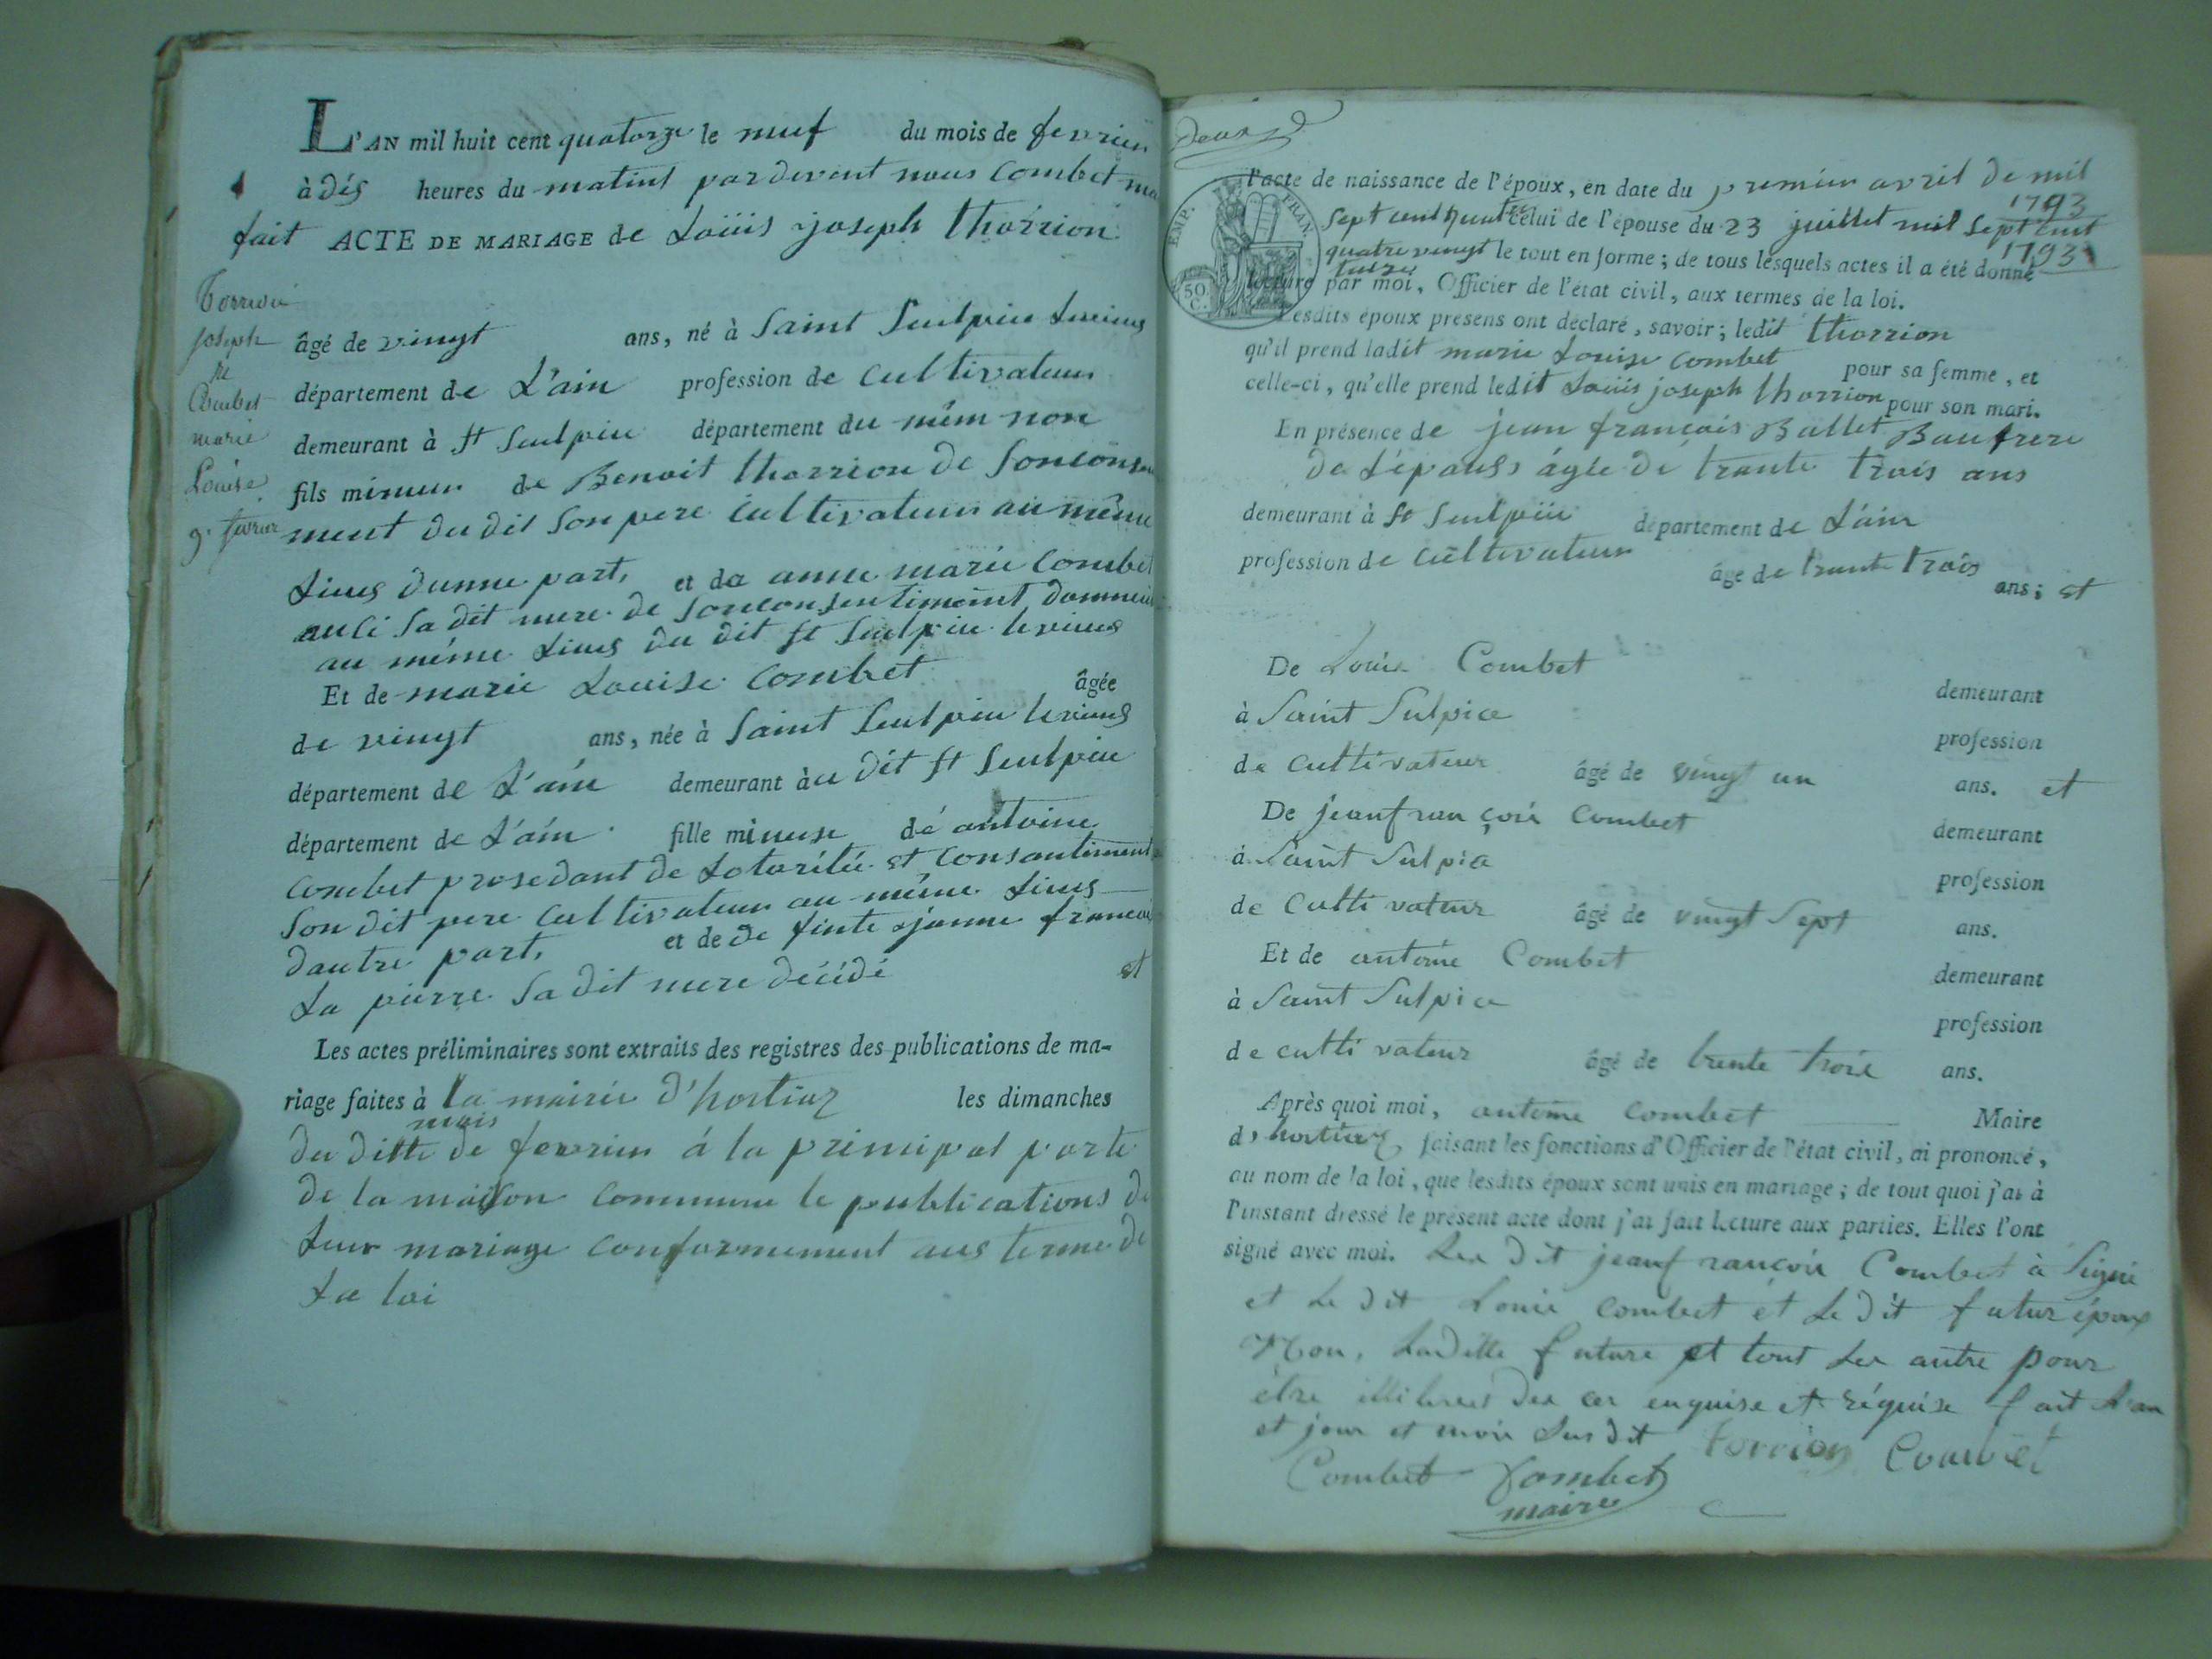 L'AN mil huit cent quatorze le neuf du mois de fevrier
à dés heures du matint pardevent nous Combet
fait ACTE DE MARIAGE de Loüis joseph thorrion
Torrion
joseph
Combet
marie
Louise
9. fevrier
âgé de vingt ans, né à Saint Seulpice
département de L'ain profession de cultivateur
demeurant à St Seulpice département du mêm non
fils mineur de Benoit thorrion de
ment du dit son pere cultivateur au même
Lieus dunne part, et de anne marie Combet
sa dit mere de
au même Lieus du dit St Seulpice
Et de marie Louise Combet âgée
de vingt ans, née à Saint Seulpice
département de L'ain demeurant àu dit St Seulpice
département de L'ain fille mineuse de antoine
Combet prosedant de Lotoritée et consantiment
son dit pere cultivateur au même Lieus
dautre part, et de de finte janne
La pierre sa dit mere décédé et
Les actes préliminaires sont extraits des registres des publications de ma-
riage faites à la mairie d'hostiaz les dimanches
mois
du ditte de fevrier à la principal porte
de la maison commune le publications de
Leur mariage conformement aus terme de
La loi
deux
EMP. FRAN.
50 C.
l'acte de naissance de l'époux, en date du premier avril de mil
1793
sept cent celui de l'épouse du 23 juillet mil sept cent
1793
quatre vingt le tout en forme; de tous lesquels actes il a été donné
treize
lecture par moi, Officier de l'état civil, aux termes de la loi.
Lesdits époux présens ont déclaré, savoir; ledit thorrion
qu'il prend ladit marie Louise Combet pour sa femme, et
celle-ci, qu'elle prend ledit Loüis joseph thorrion pour son mari.
En présence de jean francois Ballet Baufrere
de L'épouse ágée de trante trois ans
demeurant à St Seulpice département de L'ain
profession de cultivateur âge de trante trois ans; et
De Louis Combet demeurant
à Saint Sulpice profession
de cultivateur âgé de vingt un ans. et
De jeanfrançois Combet demeurant
à Saint Sulpice profession
de cultivateur âgé de vingt sept ans.
Et de antoine Combet demeurant
à Saint Sulpice profession
de cultivateur âgé de trente trois ans.
Après quoi moi, antoine Combet Maire
d'hostiaz, faisant les fonctions d'Officier de l'état civil, ai prononcé,
au nom de la loi, que lesdits époux sont unis en mariage; de tout quoi j'ai à
l'instant dressé le présent acte dont j'ai fait lecture aux parties. Elles l'ont
signé avec moi. dit jeanfrançois Combet à Signé
et Le dit Louis Combet et Le dit futur époux
Non, Laditte future et tout Les autre pour
être de ce enquise et réquise fait L'an
et jour et mois Susdit torrion Combet
Combet Combet
maire